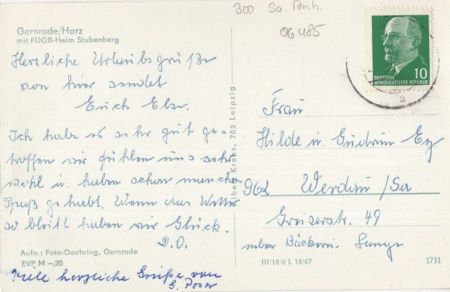 Gernrode/Harz
mit FDGB-Heim Stubenberg
Herzliche Urlaubsgrüße
von hier sendet
Euch Elsa.
Ich habe es sehr gut ge-
troffen wir fühlen uns sehr
wohl u. haben schon manchen
Spaß gehabt. Wenn das Wetter
so bleibt haben wir Glück.
D.O.
Aufn.: Foto-Doehring, Gernrode
EVP M –,20
Viele herzliche Grüße von
E. Poser
Krebs, 703 Leipzig
300 Sa. Anh.
06485
10
DEUTSCHE
DEMOKRATISCHE REPUBLIK
Frau
Hilde u. Gudrun
962 Werdau/Sa
Greizerstr. 49
neben Bäckerei
III/18/6 L 16/67
1731